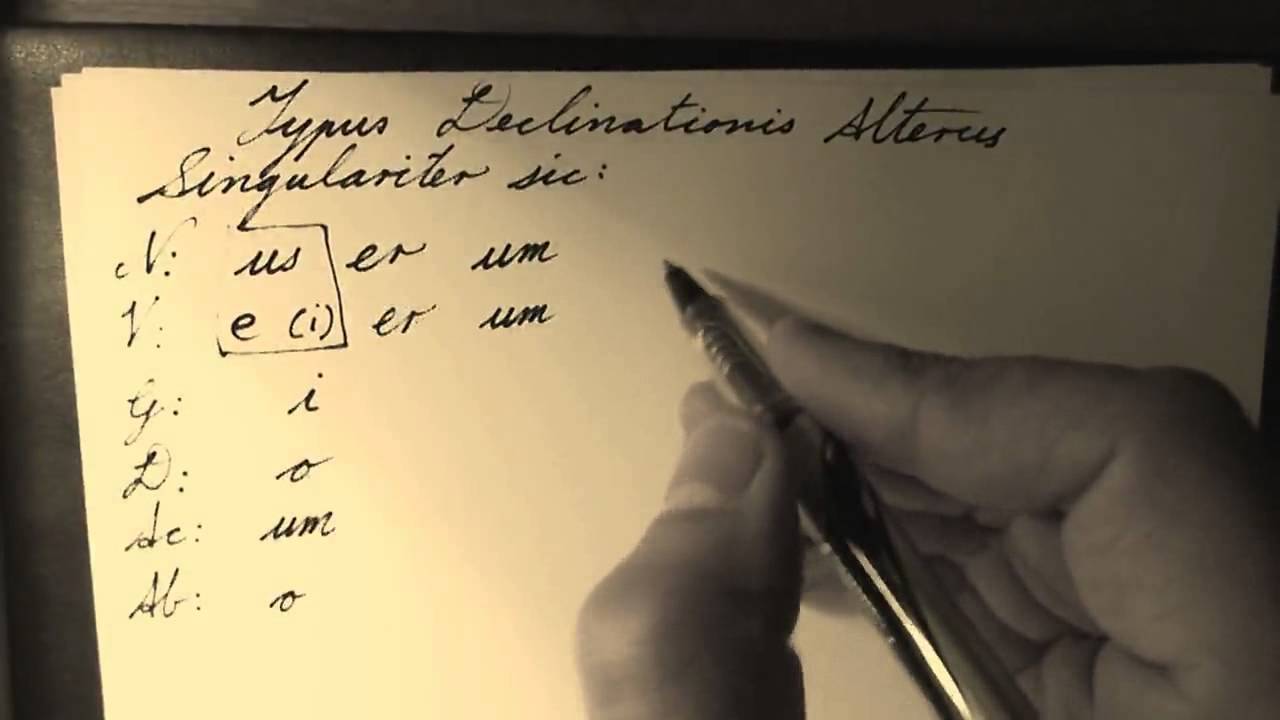 Typus Declinationis Alterus
Singulariter sic:
N: us er um
V: e (i) er um
G: i
D: o
Ac: um
Ab: o